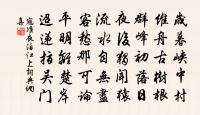 歲暮峽中村
維舟古樹根
群峰初落日
夜後獨聞猿
流水自無盡
客愁那可論
平明楚岸
迢遞指吳門
寇準夜泊江上詞典網
喜